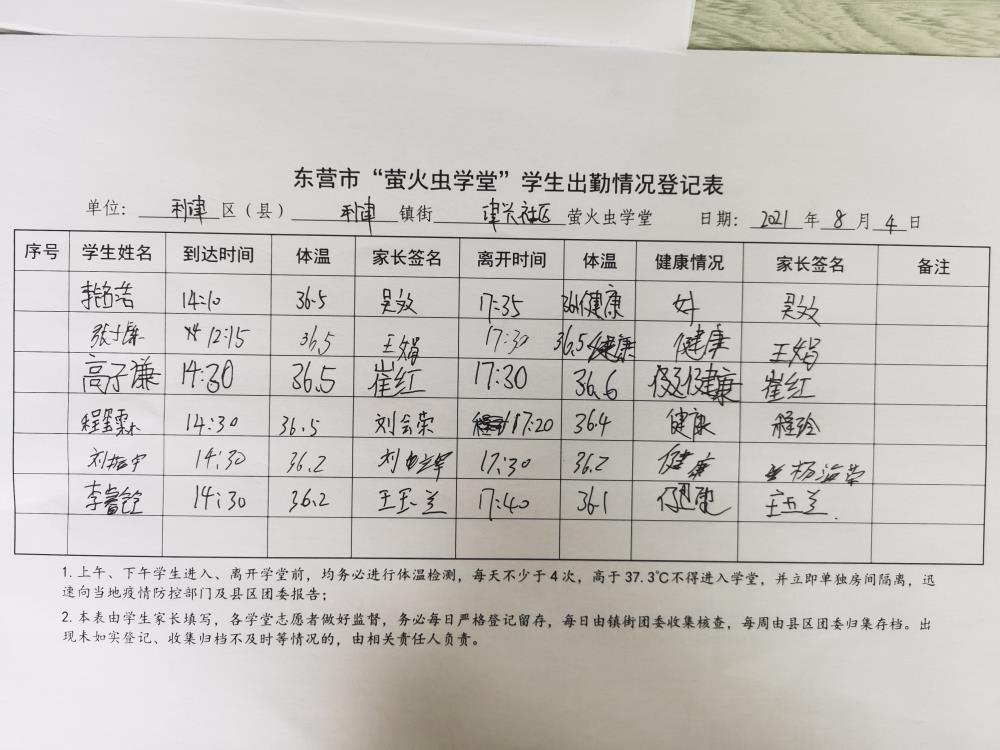 东营市“萤火虫学堂”学生出勤情况登记表
单位： 利津 区（县） 利津 镇街 津兴社区 萤火虫学堂 日期： 2021 年 8 月 4 日
序号 学生姓名 到达时间 体温 家长签名 离开时间 体温 健康情况 家长签名 备注
李铭浩 14:10 36.5 吴效 17:35 36.1 健康 好 吴效
12:15 36.5 王娟 17:30 36.5 健康 健康 王娟
高子谦 14:30 36.5 崔红 17:30 36.6 健康 崔红
14:30 36.5 刘会荣 17:20 36.4 健康 程玲
刘振宇 14:30 36.2 17:30 36.2 健康 杨海荣
李睿铨 14:30 36.2 王玉兰 17:40 36.1 健康 王玉兰
1.上午、下午学生进入、离开学堂前，均务必进行体温检测，每天不少于4次，高于37.3℃不得进入学堂，并立即单独房间隔离，迅
速向当地疫情防控部门及县区团委报告；
2.本表由学生家长填写，各学堂志愿者做好监督，务必每日严格登记留存，每日由镇街团委收集核查，每周由县区团委归集存档。出
现未如实登记、收集归档不及时等情况的，由相关责任人负责。